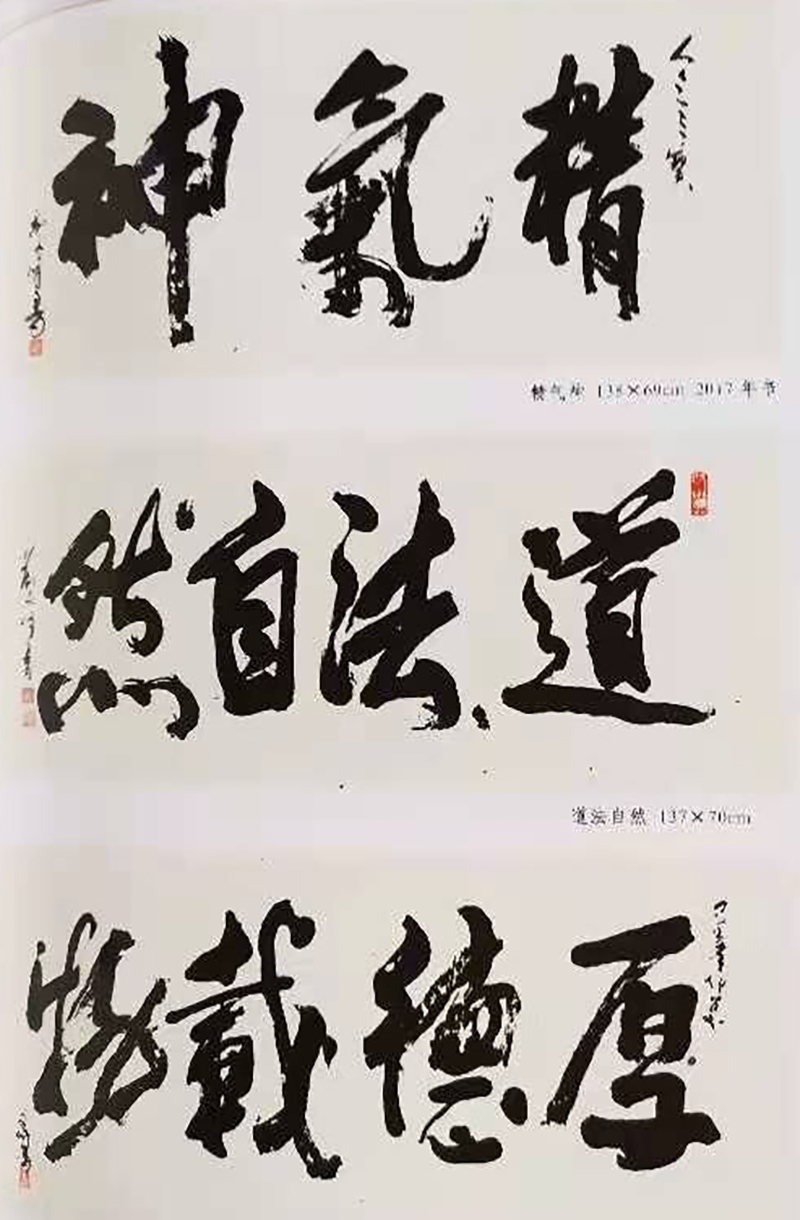 精氣神
精气神 138×69cm 2017年书
道法自然
道法自然 137×70cm
厚德載物